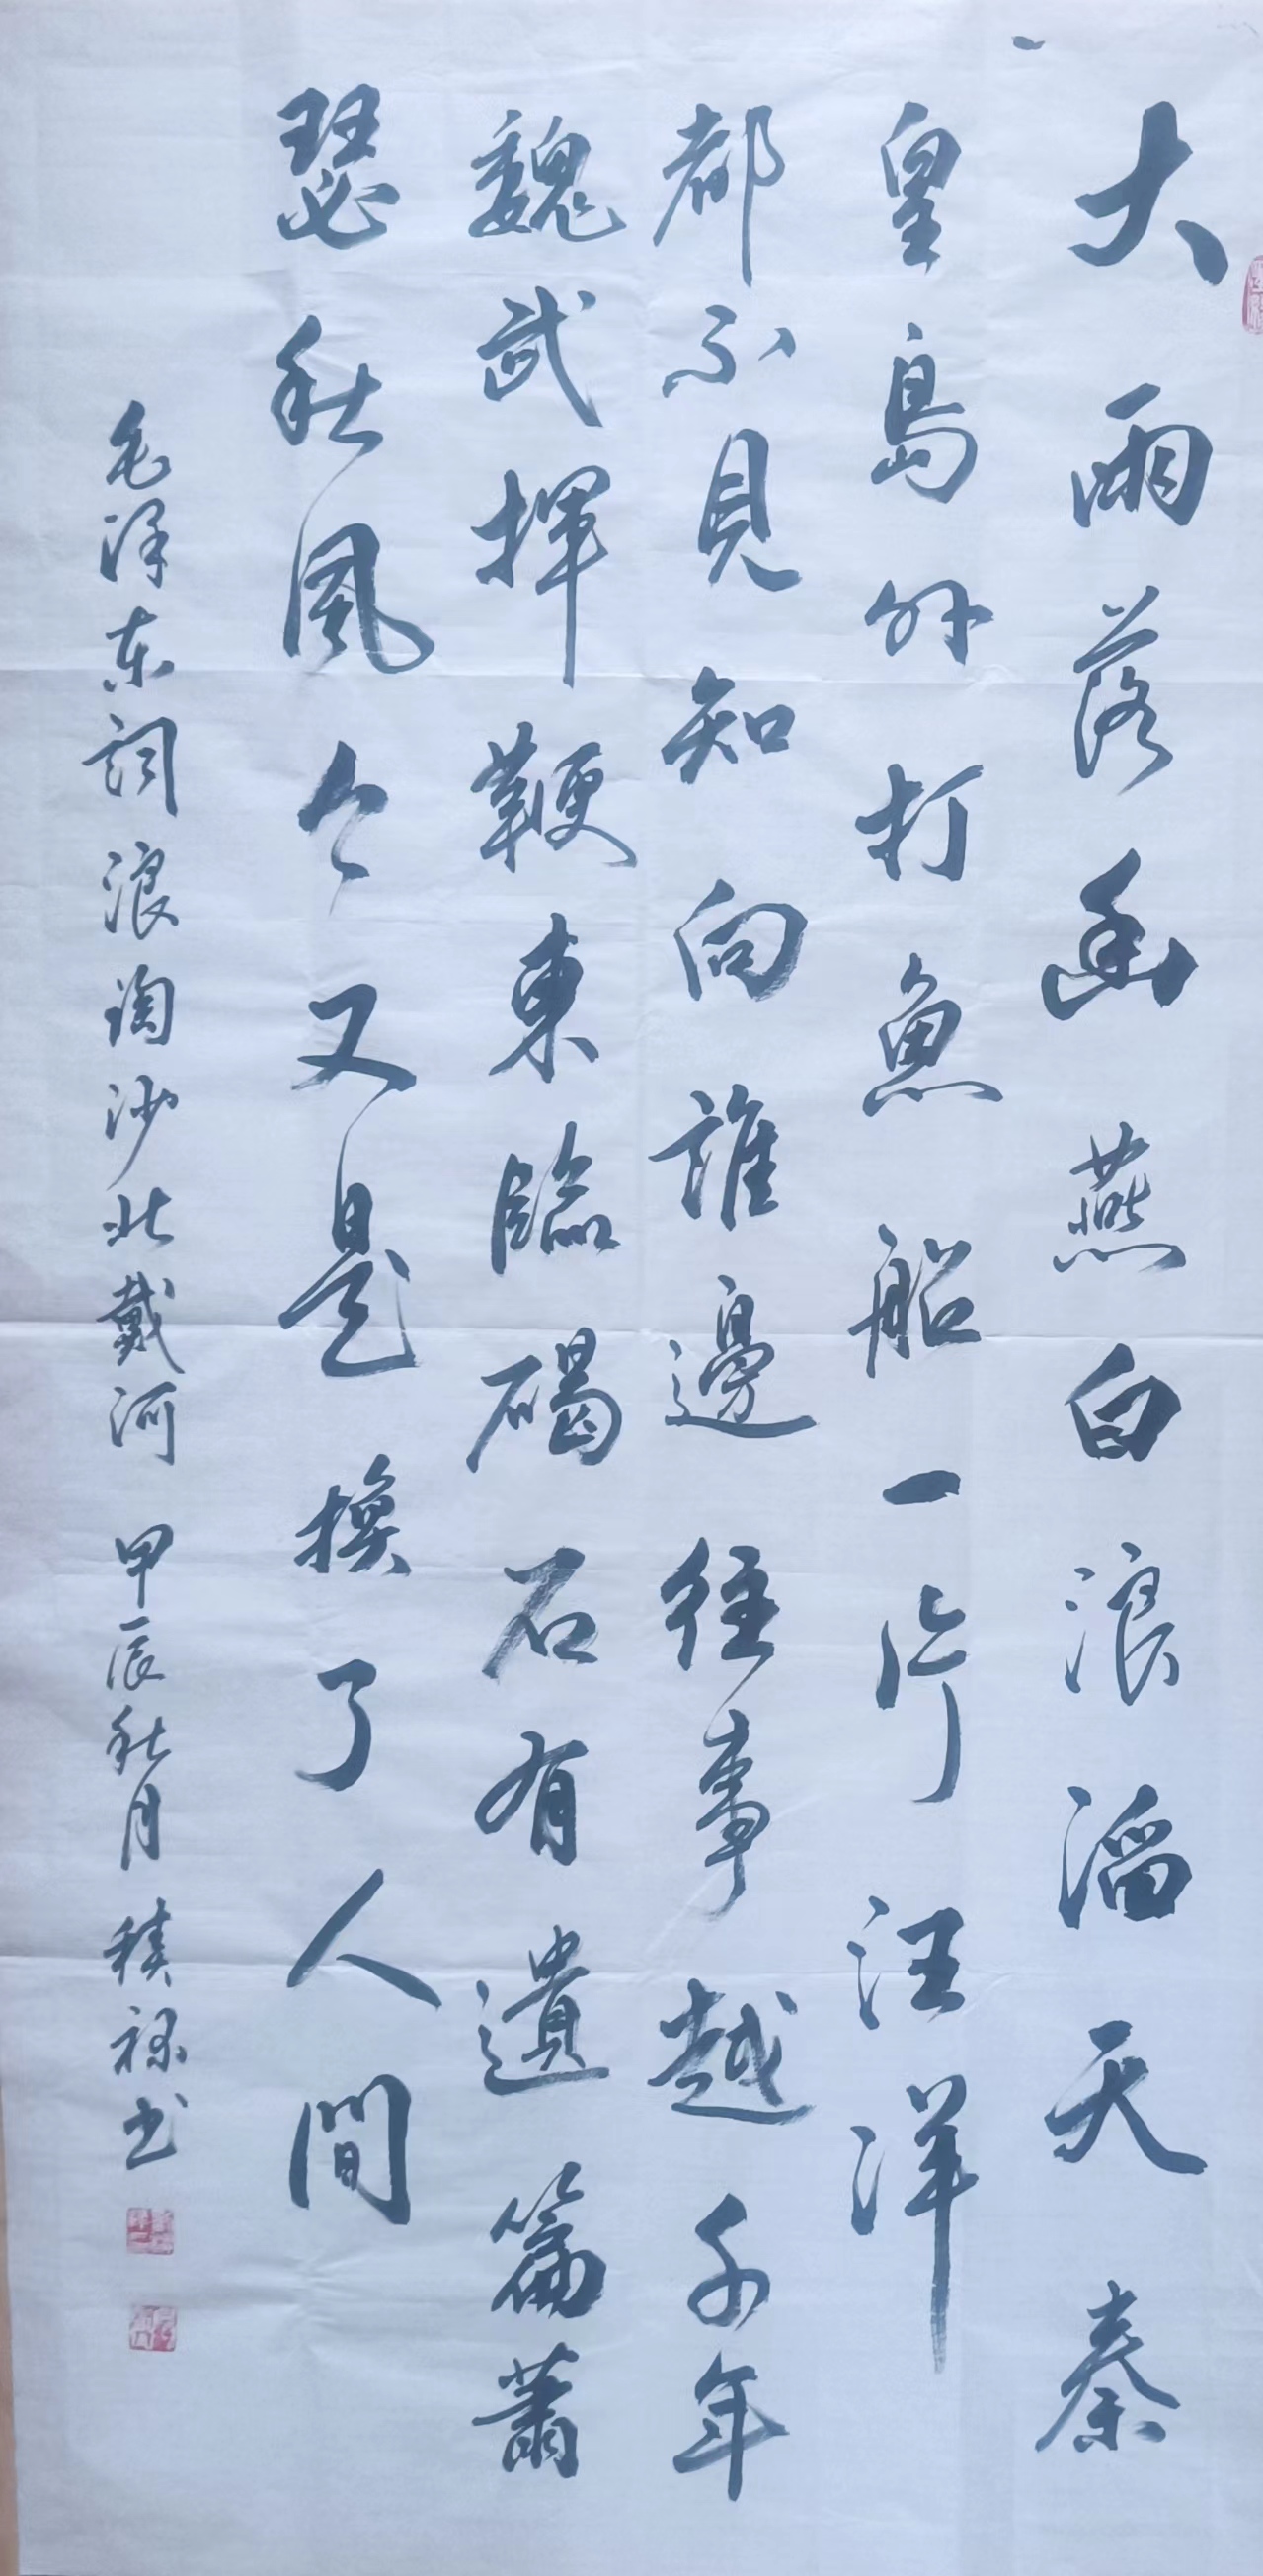 大雨落幽燕白浪滔天秦
皇島外打魚船一片汪洋
都不見知向誰邊往事越千年
魏武揮鞭東臨碣石有遺篇蕭
瑟秋風今又是換了人間
毛泽东詞浪淘沙北戴河 甲辰秋月 積禄书